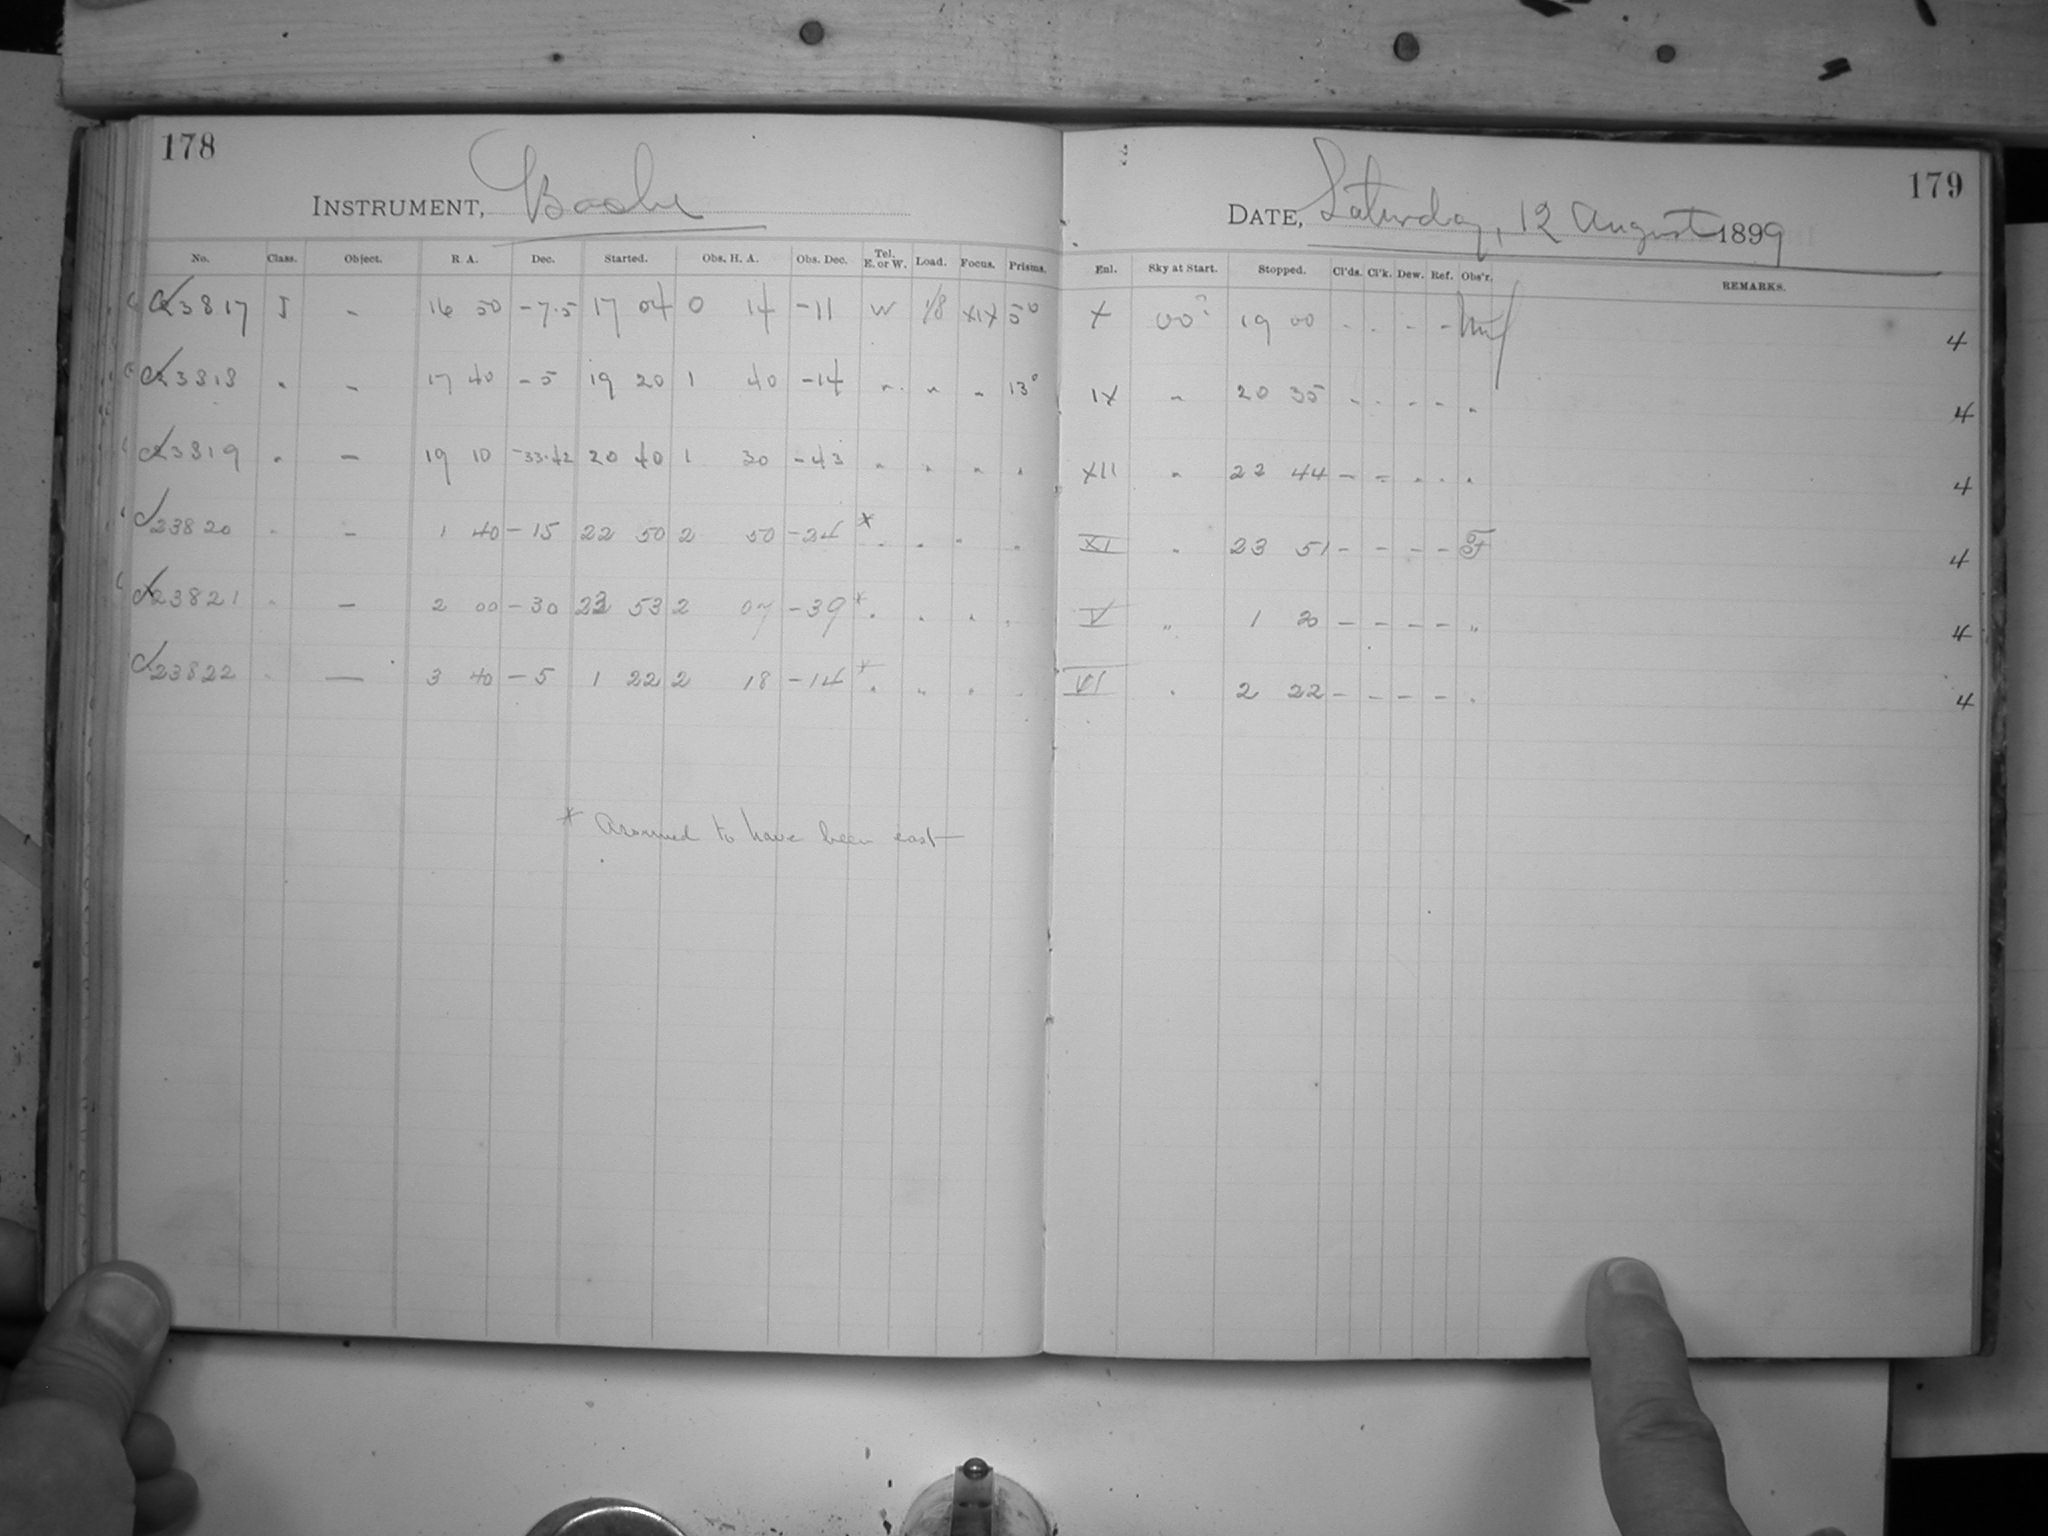 178
INSTRUMENT, Bache
No. Class. Object. R. A. Dec. Started. Obs. H. A. Obs. Dec. Tel. E. or W. Load. Focus. Prisms.
23817 I - 16 50 -7.5 17 04 0 14 -11 W 1/8 XIX 5°
23818 " - 17 40 -5 19 20 1 40 -14 " " " 13°
23819 " - 19 10 -33.42 20 40 1 30 -43 " " " "
23820 " - 1 40 -15 22 50 2 50 -24 * " " " "
23821 " - 2 00 -30 23 53 2 07 -39 * " " " "
23822 " - 3 40 -5 1 22 2 18 -14 * " " " "
* Assumed to have been east
179
DATE, Saturday, 12 August 1899
Enl. Sky at Start. Stopped. Cl'ds. Cl'k. Dew. Ref. Obs'r. REMARKS.
X 00? 19 00 - - - - 4
IX " 20 35 - - - - " 4
XII " 22 44 - - - - " 4
XI " 23 51 - - - - F 4
V " 1 20 - - - - " 4
VI " 2 22 - - - - " 4